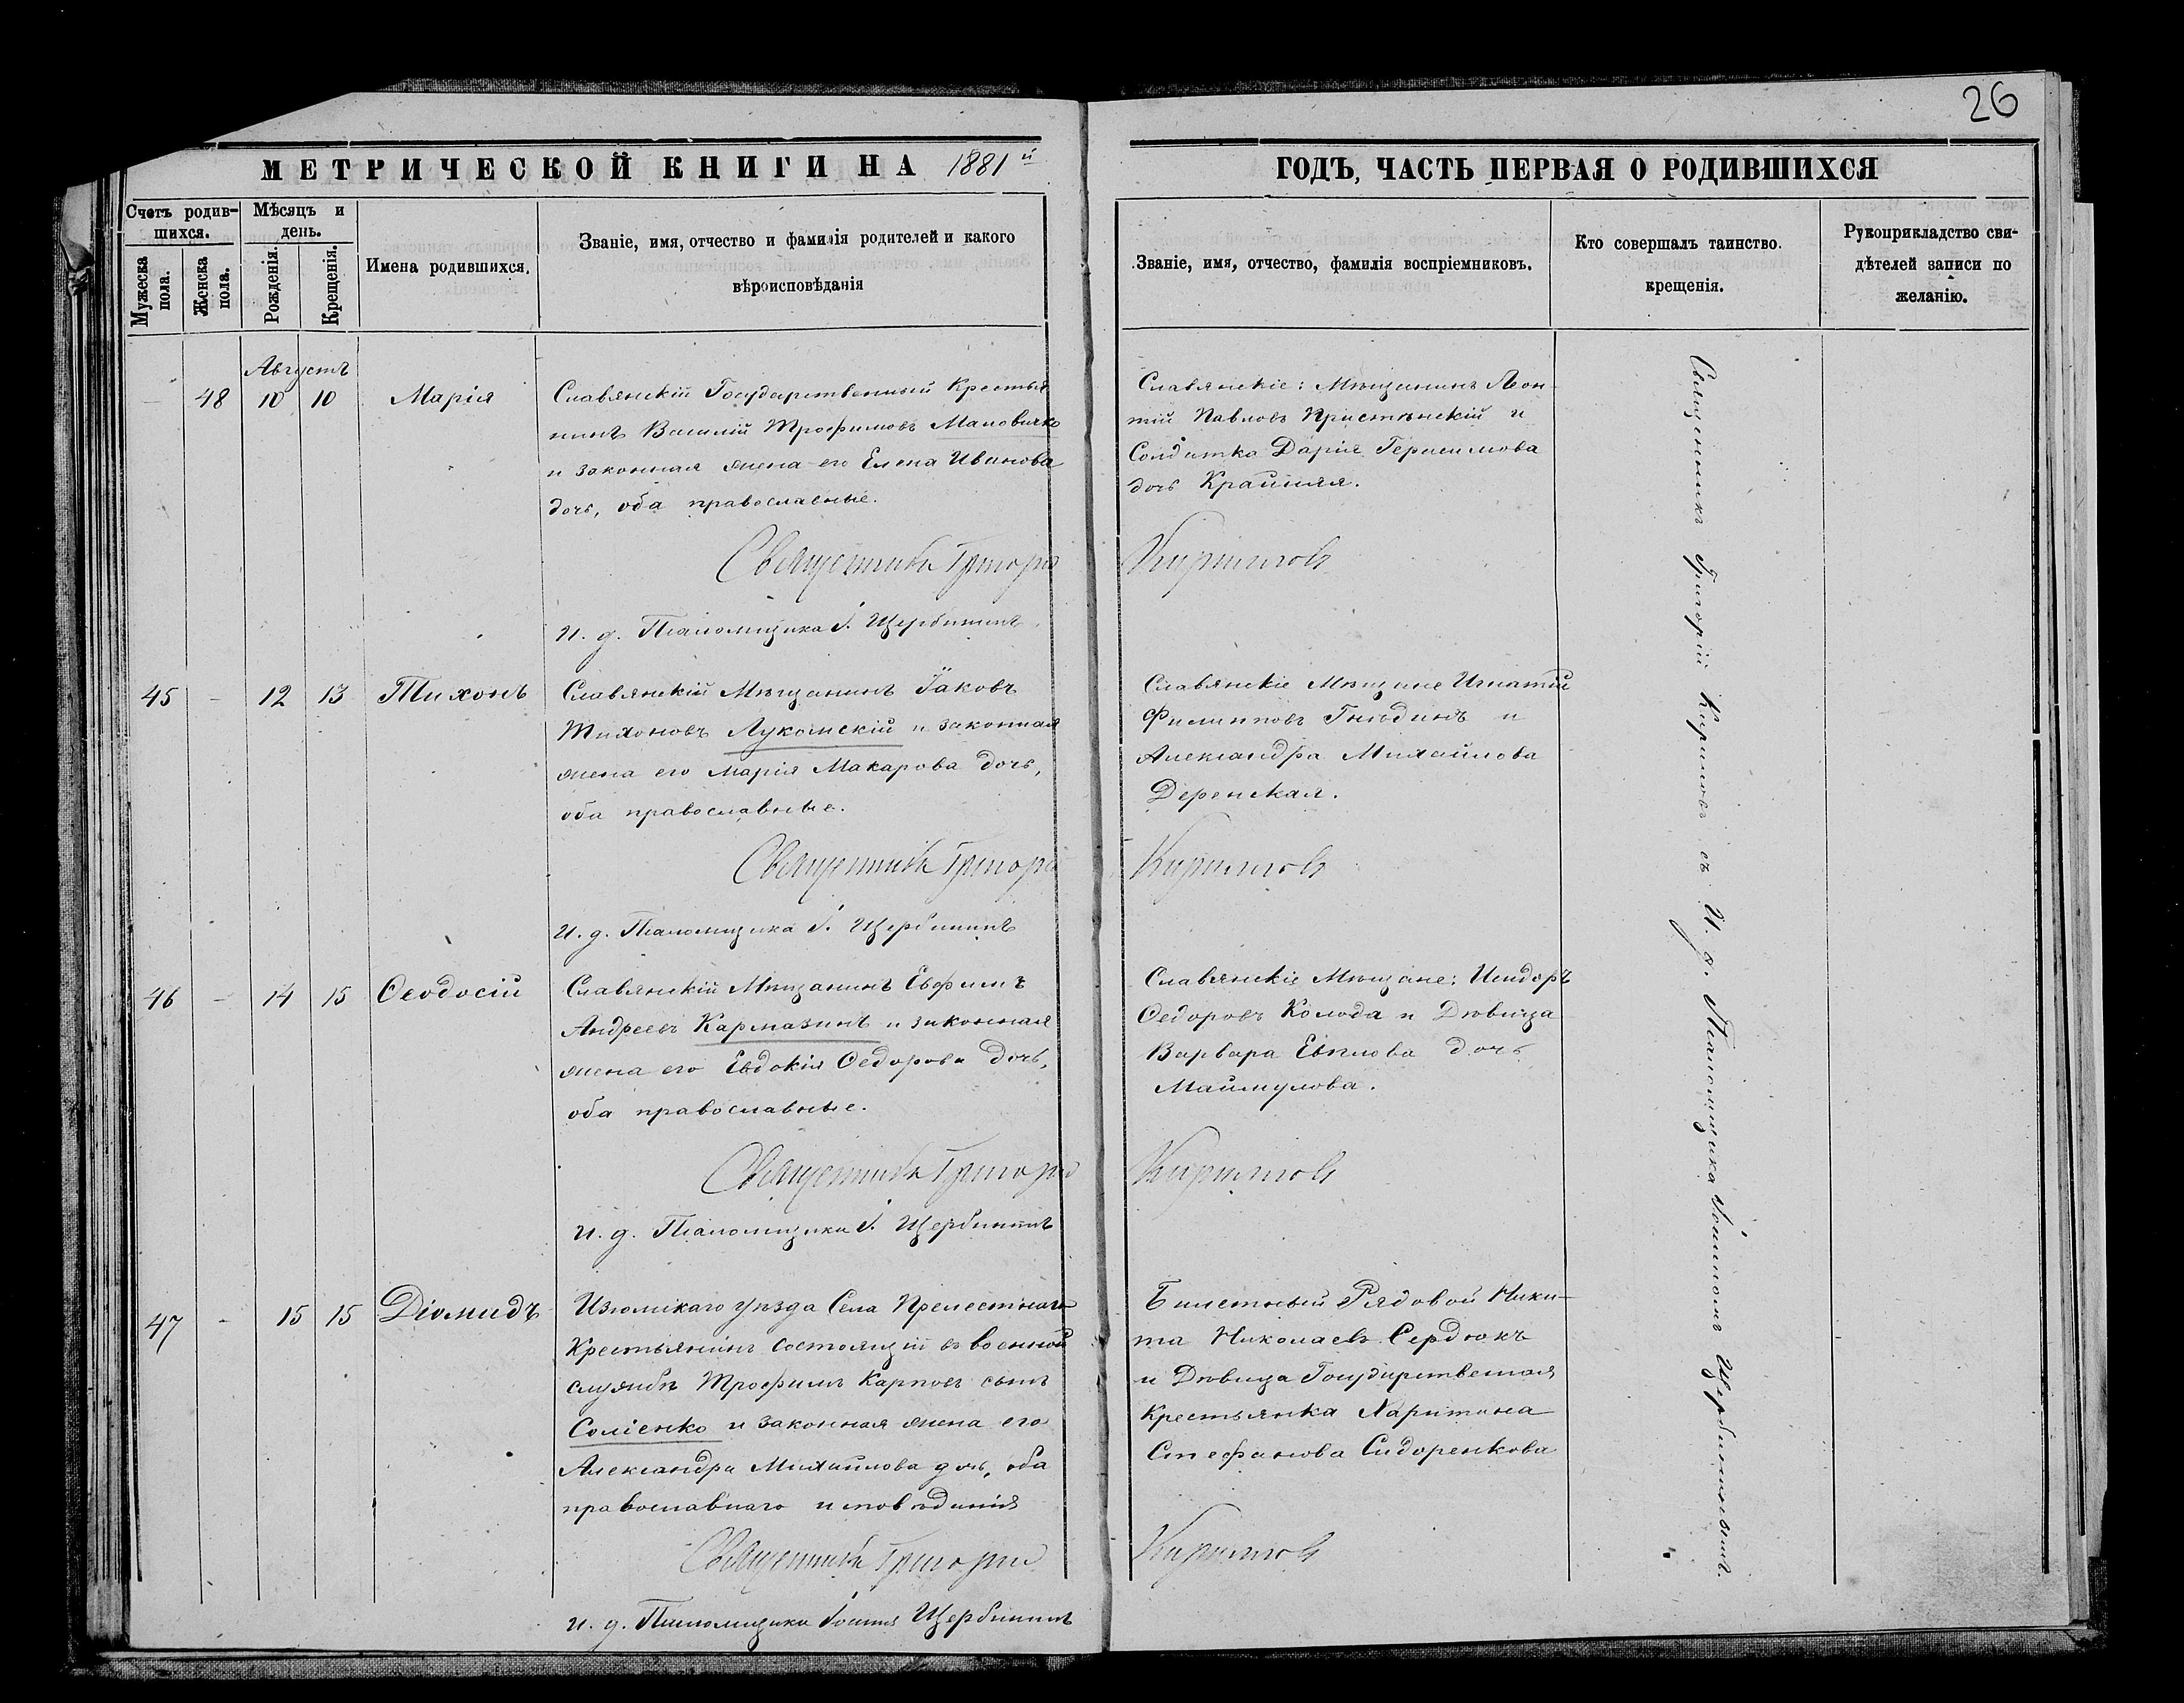 26
МЕТРИЧЕСКОЙ КНИГИ НА 1881й
ГОДЪ, ЧАСТЬ ПЕРВАЯ О РОДИВШИХСЯ
Счетъ родив-
шихся.
Мужеска
пола.
Женска
пола.
Мѣсяцъ и
день.
Рожденія.
Крещенія.
Имена родившихся.
Званіе, имя, отчество и фамилія родителей и какого
вѣроисповѣданія
Званіе, имя, отчество, фамилія воспріемниковъ.
Кто совершалъ таинство.
крещенія.
Рукоприкладство сви-
дѣтелей записи по
желанію.
Августъ
— 48 10 10 Марія
Славянскій Государственный Крестья
нинъ Василій Трофимовъ Маловичко
и законная жена его Елена Иванова
дочь, оба православные.
Священникъ Григорій
И. д. Псаломщика І. Щербининъ
Славянскіе: Мѣщанинъ Леон-
тій Павловъ Пристѣнскій и
Солдатка Дарія Герасимова
дочь Крайняя.
Кириловъ
45 – 12 13 Тихонъ
Славянскій Мѣщанинъ Іаковъ
Тихоновъ Лукомскій и законная
жена его Марія Макарова дочь,
оба православные.
Священникъ Григорій
И. д. Псаломщика І. Щербининъ
Славянскіе Мѣщане Игнатій
Филипповъ Гнѣдинъ и
Александра Михайлова
Деренская.
Кириловъ
46 – 14 15 Ѳеодосій
Славянскій Мѣщанинъ Евфимъ
Андреевъ Кармазинъ и законная
жена его Евдокія Ѳедорова дочь,
оба православные.
Священникъ Григорій
И. д. Псаломщика І. Щербининъ
Славянскіе Мѣщане: Исидоръ
Ѳедоровъ Колода и Дѣвица
Варвара Евплова дочь
Маймулова.
Кириловъ
47 – 15 15 Діомидъ
Изюмскаго уѣзда Села Прелестнаго
Крестьянинъ состоящій въ военной
службѣ Трофимъ Карповъ сынъ
Соліенко и законная жена его
Александра Михайлова дочь, оба
православнаго исповѣданія
Священникъ Григорій
И. д. Псаломщика Іоаннъ Щербининъ
Билетный Рядовой Ники-
та Николаевъ Сердюкъ
и Дѣвица Государственная
Крестьянка Харитина
Стефанова Сидоренкова
Кириловъ
Священникъ Григорій Кириловъ съ И. д. Псаломщика Іоанномъ Щербининымъ.